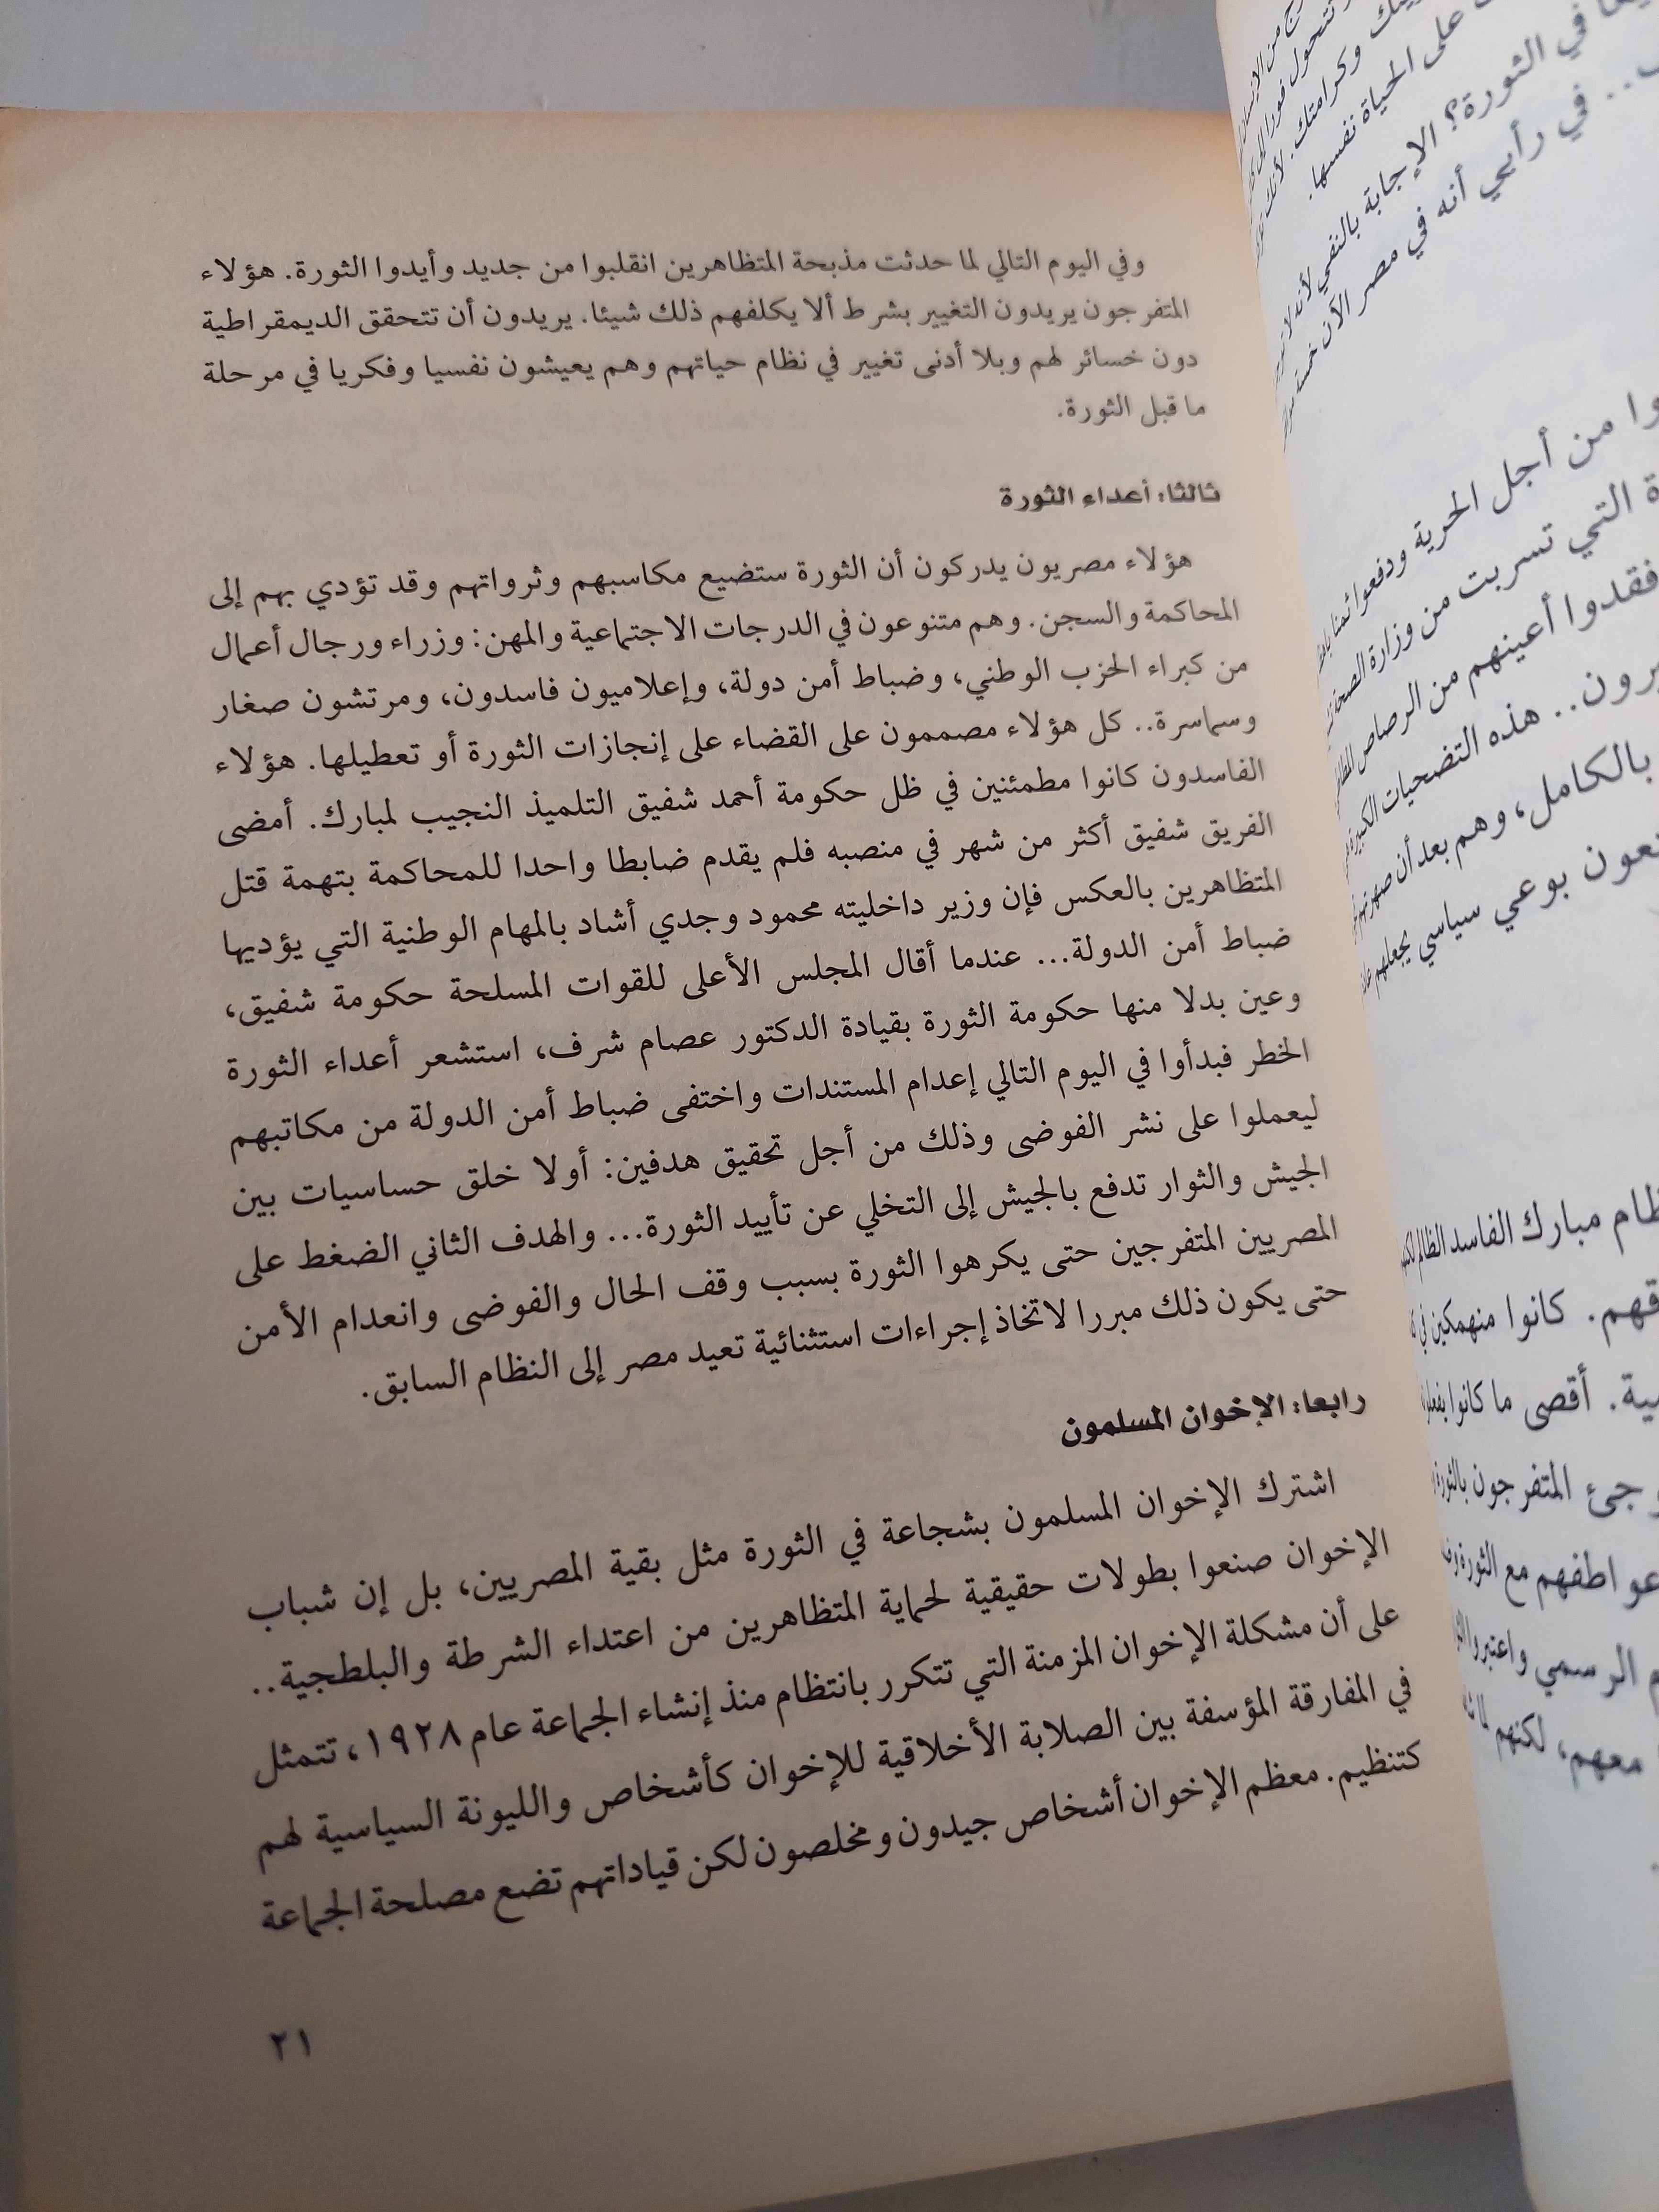 وفي اليوم التالي لما حدثت مذبحة المتظاهرين انقلبوا من جديد وأيدوا الثورة. هؤلاء
المتفرجون يريدون التغيير بشرط ألا يكلفهم ذلك شيئا. يريدون أن تتحقق الديمقراطية
دون خسائر لهم وبلا أدنى تغيير في نظام حياتهم وهم يعيشون نفسيا وفكريا في مرحلة
ما قبل الثورة.
ثالثا: أعداء الثورة
هؤلاء مصريون يدركون أن الثورة ستضيع مكاسبهم وثرواتهم وقد تؤدي بهم إلى
المحاكمة والسجن. وهم متنوعون في الدرجات الاجتماعية والمهن: وزراء ورجال أعمال
من كبراء الحزب الوطني، وضباط أمن دولة، وإعلاميون فاسدون، ومرتشون صغار
وسماسرة.. كل هؤلاء مصممون على القضاء على إنجازات الثورة أو تعطيلها. هؤلاء
الفاسدون كانوا مطمئنين في ظل حكومة أحمد شفيق التلميذ النجيب لمبارك. أمضى
الفريق شفيق أكثر من شهر في منصبه فلم يقدم ضابطا واحدا للمحاكمة بتهمة قتل
المتظاهرين بالعكس فإن وزير داخليته محمود وجدي أشاد بالمهام الوطنية التي يؤديها
ضباط أمن الدولة... عندما أقال المجلس الأعلى للقوات المسلحة حكومة شفيق،
وعين بدلا منها حكومة الثورة بقيادة الدكتور عصام شرف، استشعر أعداء الثورة
الخطر فبدأوا في اليوم التالي إعدام المستندات واختفى ضباط أمن الدولة من مكاتبهم
ليعملوا على نشر الفوضى وذلك من أجل تحقيق هدفين: أولا خلق حساسيات بين
الجيش والثوار تدفع بالجيش إلى التخلي عن تأييد الثورة... والهدف الثاني الضغط على
المصريين المتفرجين حتى يكرهوا الثورة بسبب وقف الحال والفوضى وانعدام الأمن
حتى يكون ذلك مبررا لاتخاذ إجراءات استثنائية تعيد مصر إلى النظام السابق.
رابعا: الإخوان المسلمون
اشترك الإخوان المسلمون بشجاعة في الثورة مثل بقية المصريين، بل إن شباب
الإخوان صنعوا بطولات حقيقية لحماية المتظاهرين من اعتداء الشرطة والبلطجية..
على أن مشكلة الإخوان المزمنة التي تتكرر بانتظام منذ إنشاء الجماعة عام ١٩٢٨، تتمثل
في المفارقة المؤسفة بين الصلابة الأخلاقية للإخوان كأشخاص والليونة السياسية لهم
كتنظيم. معظم الإخوان أشخاص جيدون ومخلصون لكن قياداتهم تضع مصلحة الجماعة
٢١
وكرامتك. لأنك
على الحياة نفسها.
في الثورة؟ الإجابة بالنفي لأنه
في رأيي أنه في مصر الآن خمسة
من أجل الحرية ودفعوا ثمنا
التي تسربت من وزارة الصحة
فقدوا أعينهم من الرصاص
هذه التضحيات الكبيرة
بالكامل، وهم بعد أن صهرتهم
بوعي سياسي يجعلهم
مبارك الفاسد الظالم
كانوا منهمكين في
أقصى ما كانوا
المتفرجون بالثورة
مع الثورة
الرسمي واعتبروا
معهم، لكنهم لما